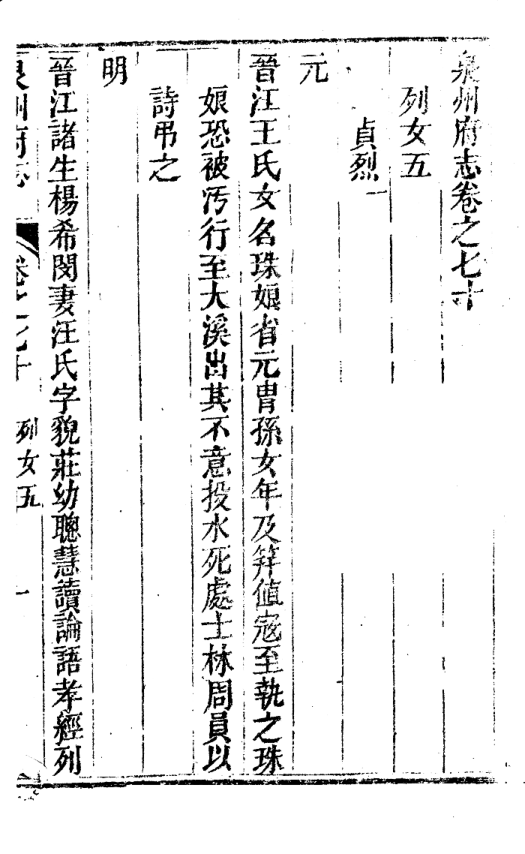 泉州府志卷之七十
列女五
貞烈一
元
晉江王氏女名珠娘省元胄孫女年及笄值寇至執之珠
娘恐被汚行至大溪出其不意投水死處士林周員以
詩弔之
明
晉江諸生楊希閔妻汪氏字貌莊幼聰慧讀論語孝經列
泉州府志
卷之七十
列女五
一